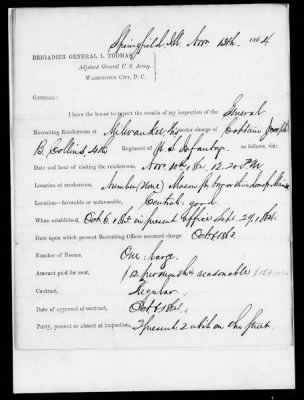 Springfield, Ill. Nov. 13th, 1864
BRIGADIER GENERAL L. THOMAS,
Adjutant General U. S. Army,
WASHINGTON CITY, D. C.
GENERAL:
I have the honor to report the results of my inspection of the General
Recruiting Rendezvous at Milwaukee, under charge of Captain Joseph
B. Collins 4th Regiment of U. S. Infantry, as follows, viz:
Date and hour of visiting the rendezvous, Nov. 10th, 12.20 P.M.
Location of rendezvous, Number (None) Mason
Location—favorable or unfavorable, Central: good.
When established, Oct 6, in present Office Sept. 29, 1861.
Date upon which present Recruiting Officer assumed charge Oct 1862
Number of Rooms, One: large.
Amount paid for rent, per month reasonable
Contract, Regular.
Date of approval of contract, Oct 1861.
Party, present or absent at inspection, 3 present: 2 absent on the street.